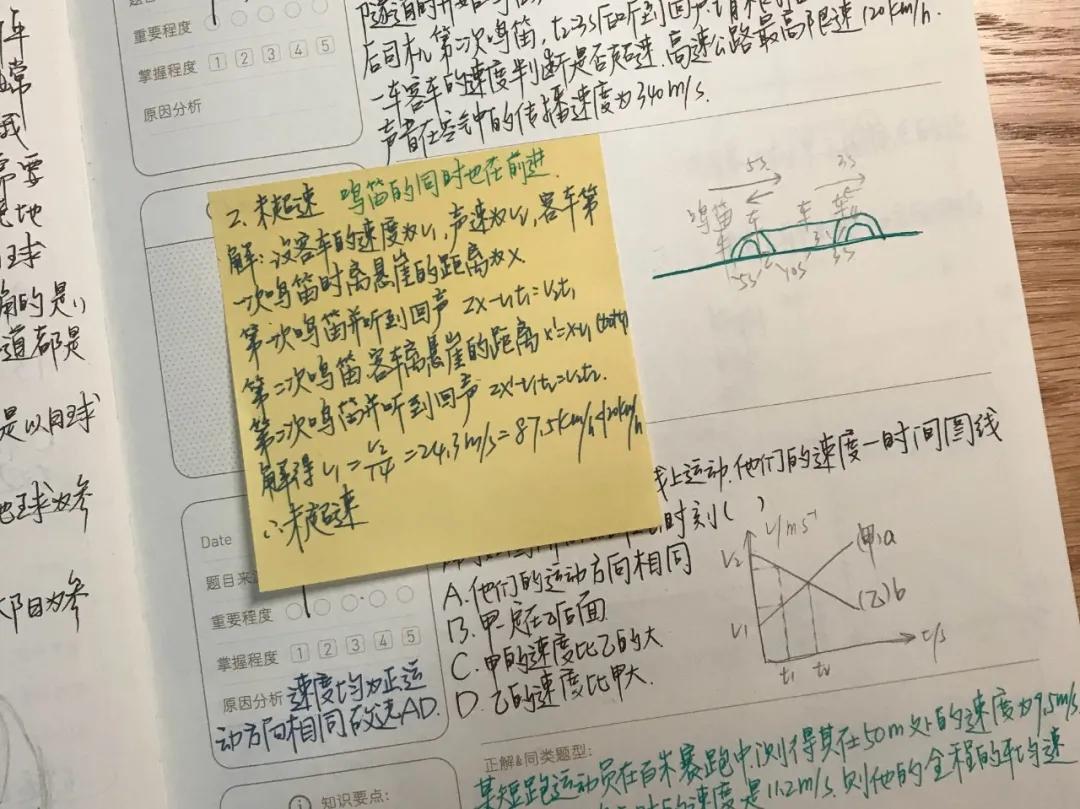 车
常
我
常要
地
球
的是，
道都是
是以月球
地球为参
太阳为参
重要程度
掌握程度 1 2 3 4 5
原因分析
后司机第二次鸣笛，t2=3s后听到回声，请根据
一车客车的速度判断是否超速，高速公路最高限速120km/h.
声音在空气中的传播速度为340m/s.
5s 3s
鸣笛 车 车
5s 10s 3s
2. 未超速 鸣笛的同时也在前进.
解：设客车的速度为v₁，声速为v₂，客车第
一次鸣笛时离悬崖的距离为x
第一次鸣笛并听到回声 2x-v₁t₁=v₂t₁
第二次鸣笛客车离悬崖的距离x'=x-v₁
第二次鸣笛并听到回声 2x'-v₁t₂=v₂t₂.
解得 v₁=v₂/14=24.3m/s=87.5km/h<120km/h
∴未超速
线上运动，他们的速度一时间图线
时刻( )
A.他们的运动方向相同
B.甲一定在乙后面
C.甲的速度比乙的大
D.乙的速度比甲大.
V/m·s⁻¹
V₂
(甲)a
(乙)b
V₁
t₁ t₂ t/s
Date
题目来
重要程度
掌握程度 1 2 3 4 5
原因分析 速度均为正运
动方向相同故选AD.
正解&同类题型：
某短跑运动员在百米赛跑中，测得其在50m处的速度为9.5m/s
的速度是11.2m/s.则他的全程的平均速
知识要点：